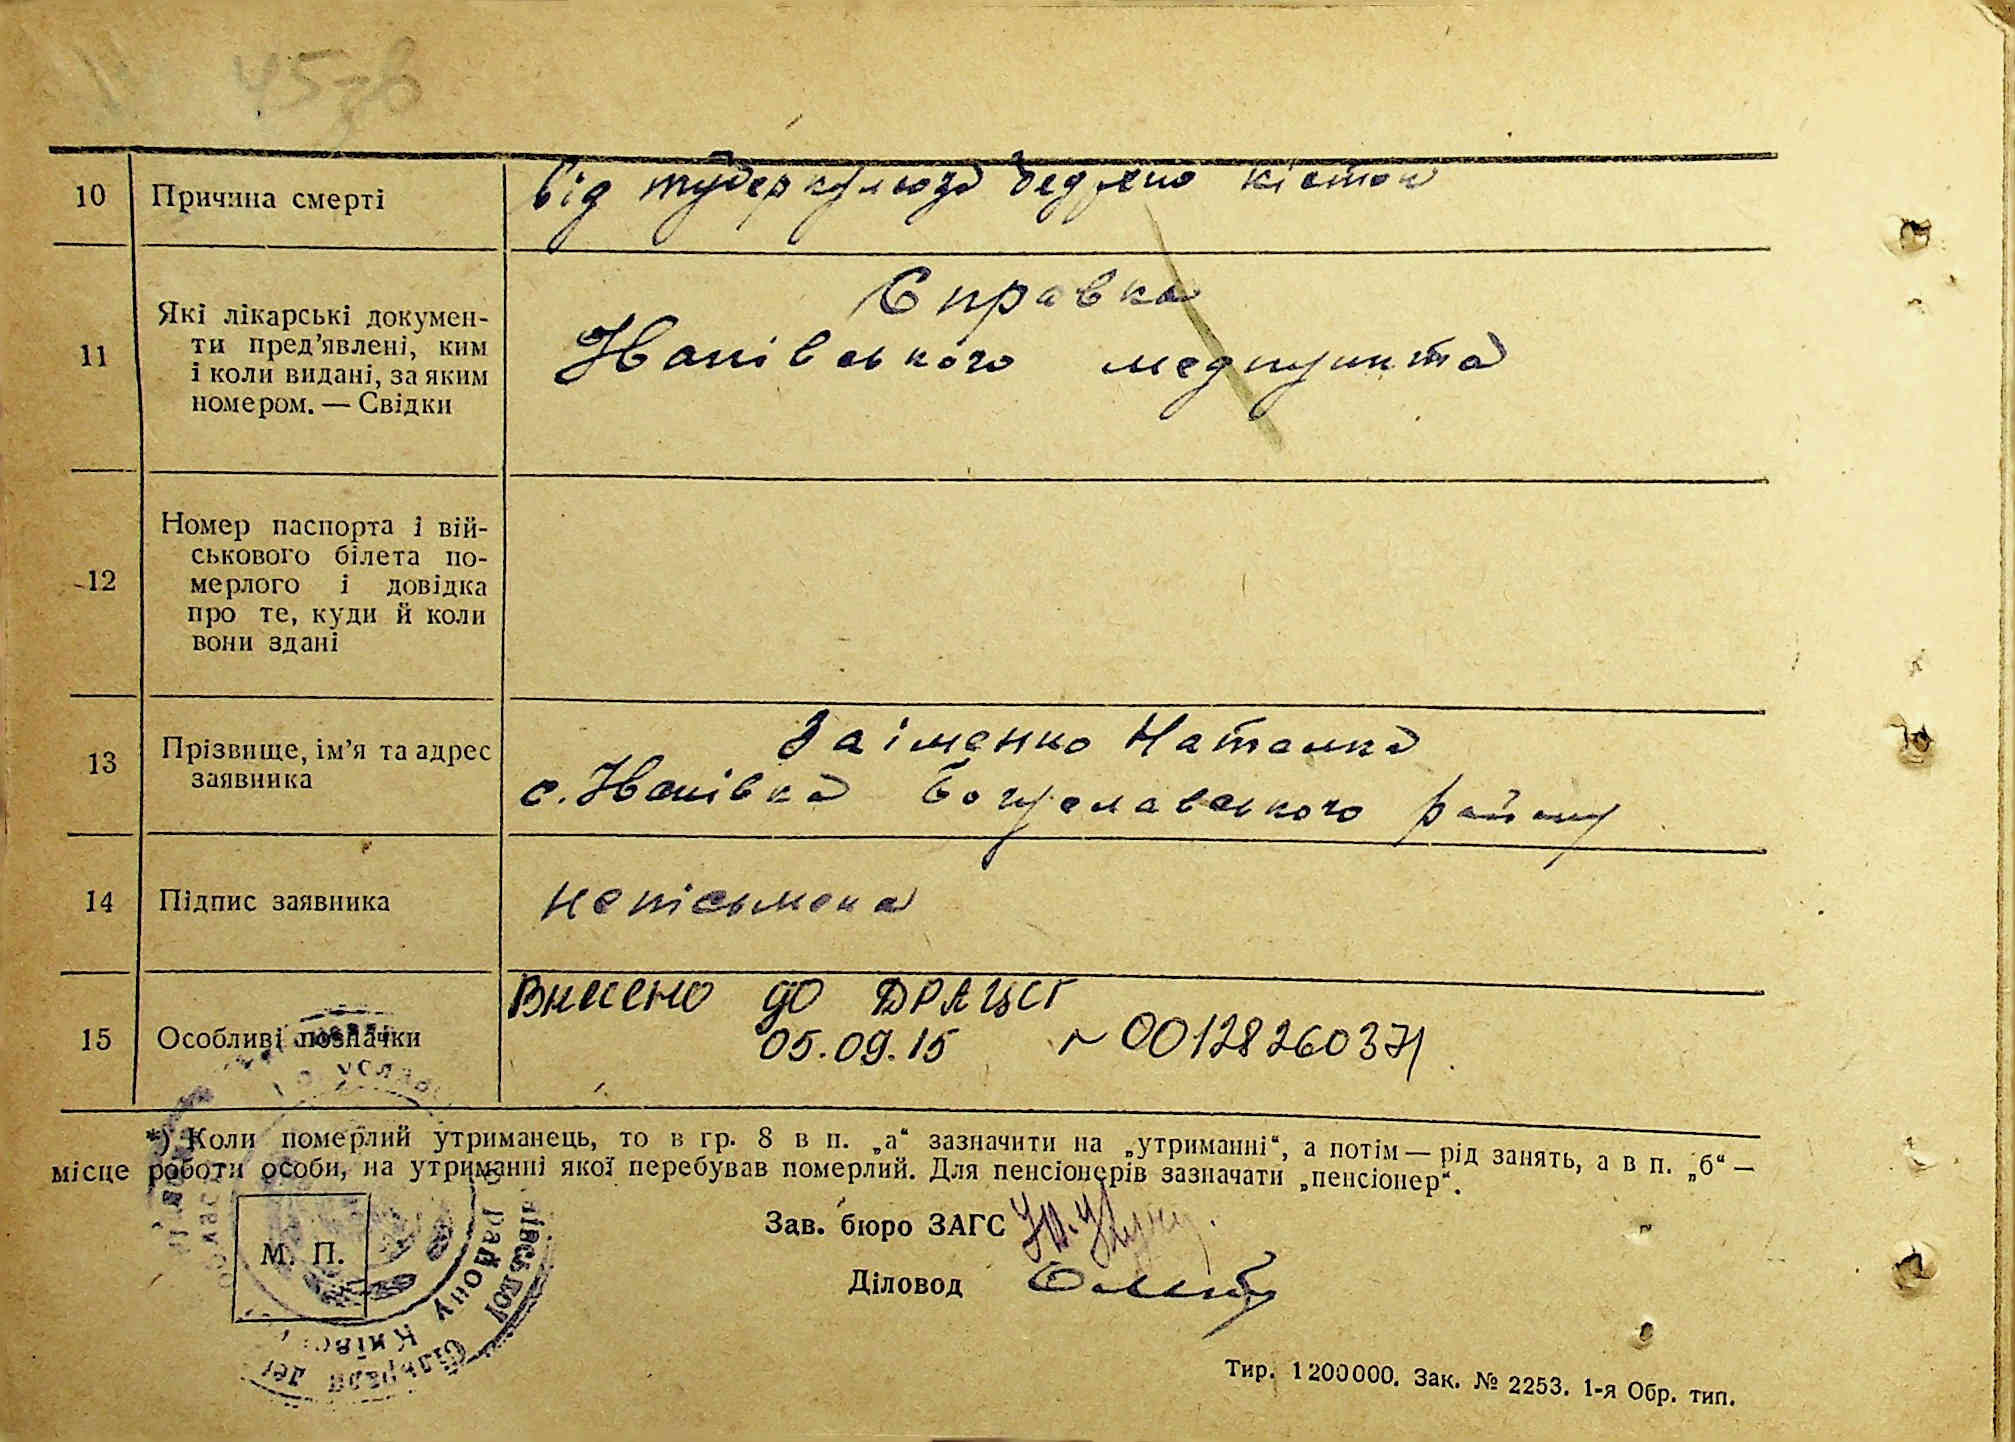 10 Причина смерті від туберкульоза бедряно кісток
11 Які лікарські докумен-
ти пред’явлені, ким
і коли видані, за яким
номером. — Свідки
Справка
медпункта
12 Номер паспорта і вій-
ськового білета по-
мерлого і довідка
про те, куди й коли
вони здані
13 Прізвище, ім’я та адрес
заявника
Заіменко Наталка
с. Богуславського району
14 Підпис заявника непісьмена
15 Особливі позначки
Внесено до ДРАЦСГ
05.09.15 00128260371
*) Коли померлий утриманець, то в гр. 8 в п. „а“ зазначити на „утриманні“, а потім — рід занять, а в п. „б“ —
місце роботи особи, на утриманні якої перебував померлий. Для пенсіонерів зазначати „пенсіонер“.
М. П.
Зав. бюро ЗАГС
Діловод
району
Сільради
Тир. 1200000. Зак. № 2253. 1-я Обр. тип.